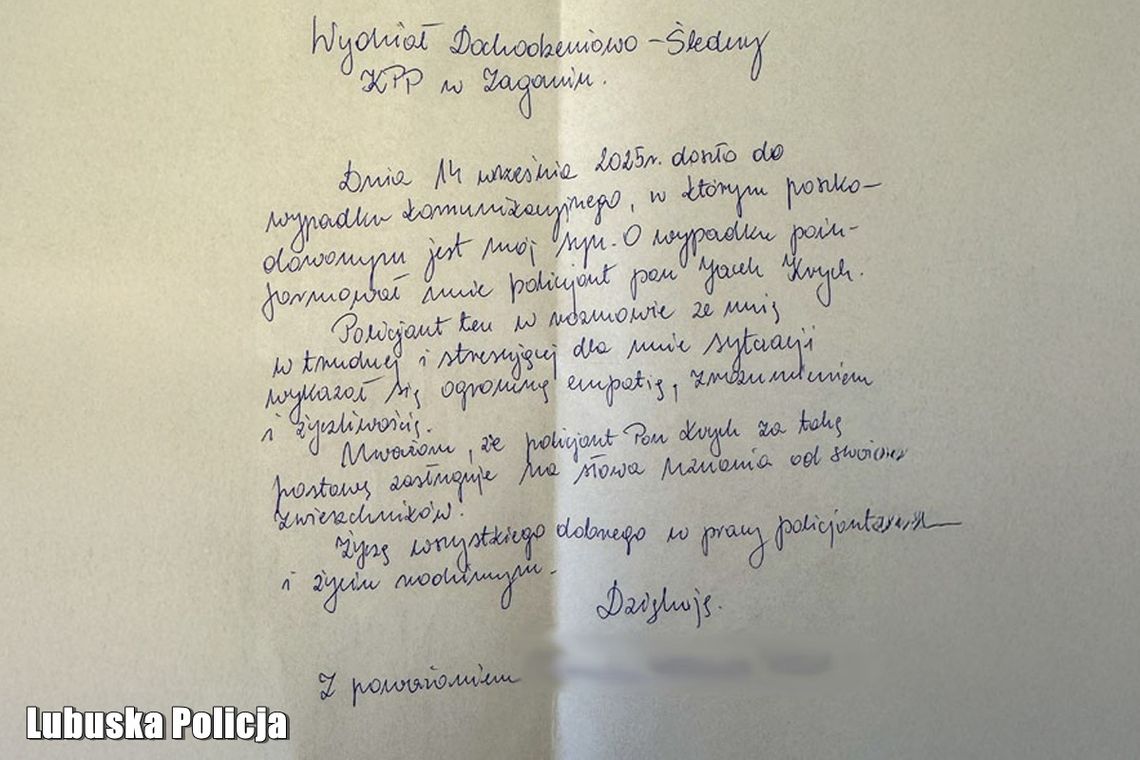 Wydział Dochodzeniowo-Śledczy
KPP w Żaganiu.
Dnia 14 września 2025r. doszło do
wypadku komunikacyjnego, w którym poszko-
dowanym jest mój syn. O wypadku poin-
formował mnie policjant pan Jacek Krych.
Policjant ten w rozmowie ze mną
w trudnej i stresującej dla mnie sytuacji
wykazał się ogromną empatią, zrozumieniem
i życzliwością.
Uważam, że policjant Pan Krych za taką
postawę zasługuje na słowa uznania od swoich
zwierzchników.
Życzę wszystkiego dobrego w pracy
i życiu rodzinnym.
Dziękuję.
Z poważaniem
Lubuska Policja